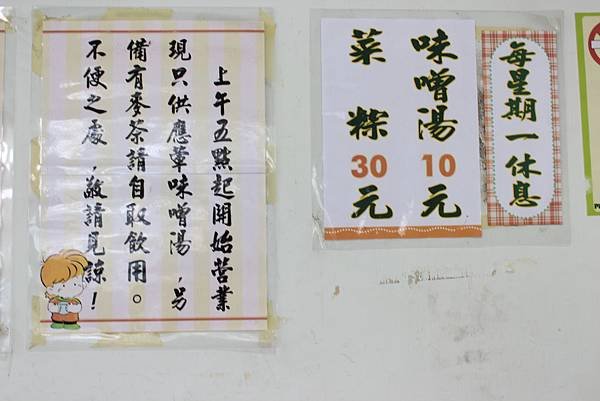 上午五點起開始營業
現只供應葷味噌湯,另
備有麥茶請自取飲用。
不便之處,敬請見諒!
味噌湯10元
菜粽30元
每星期一休息